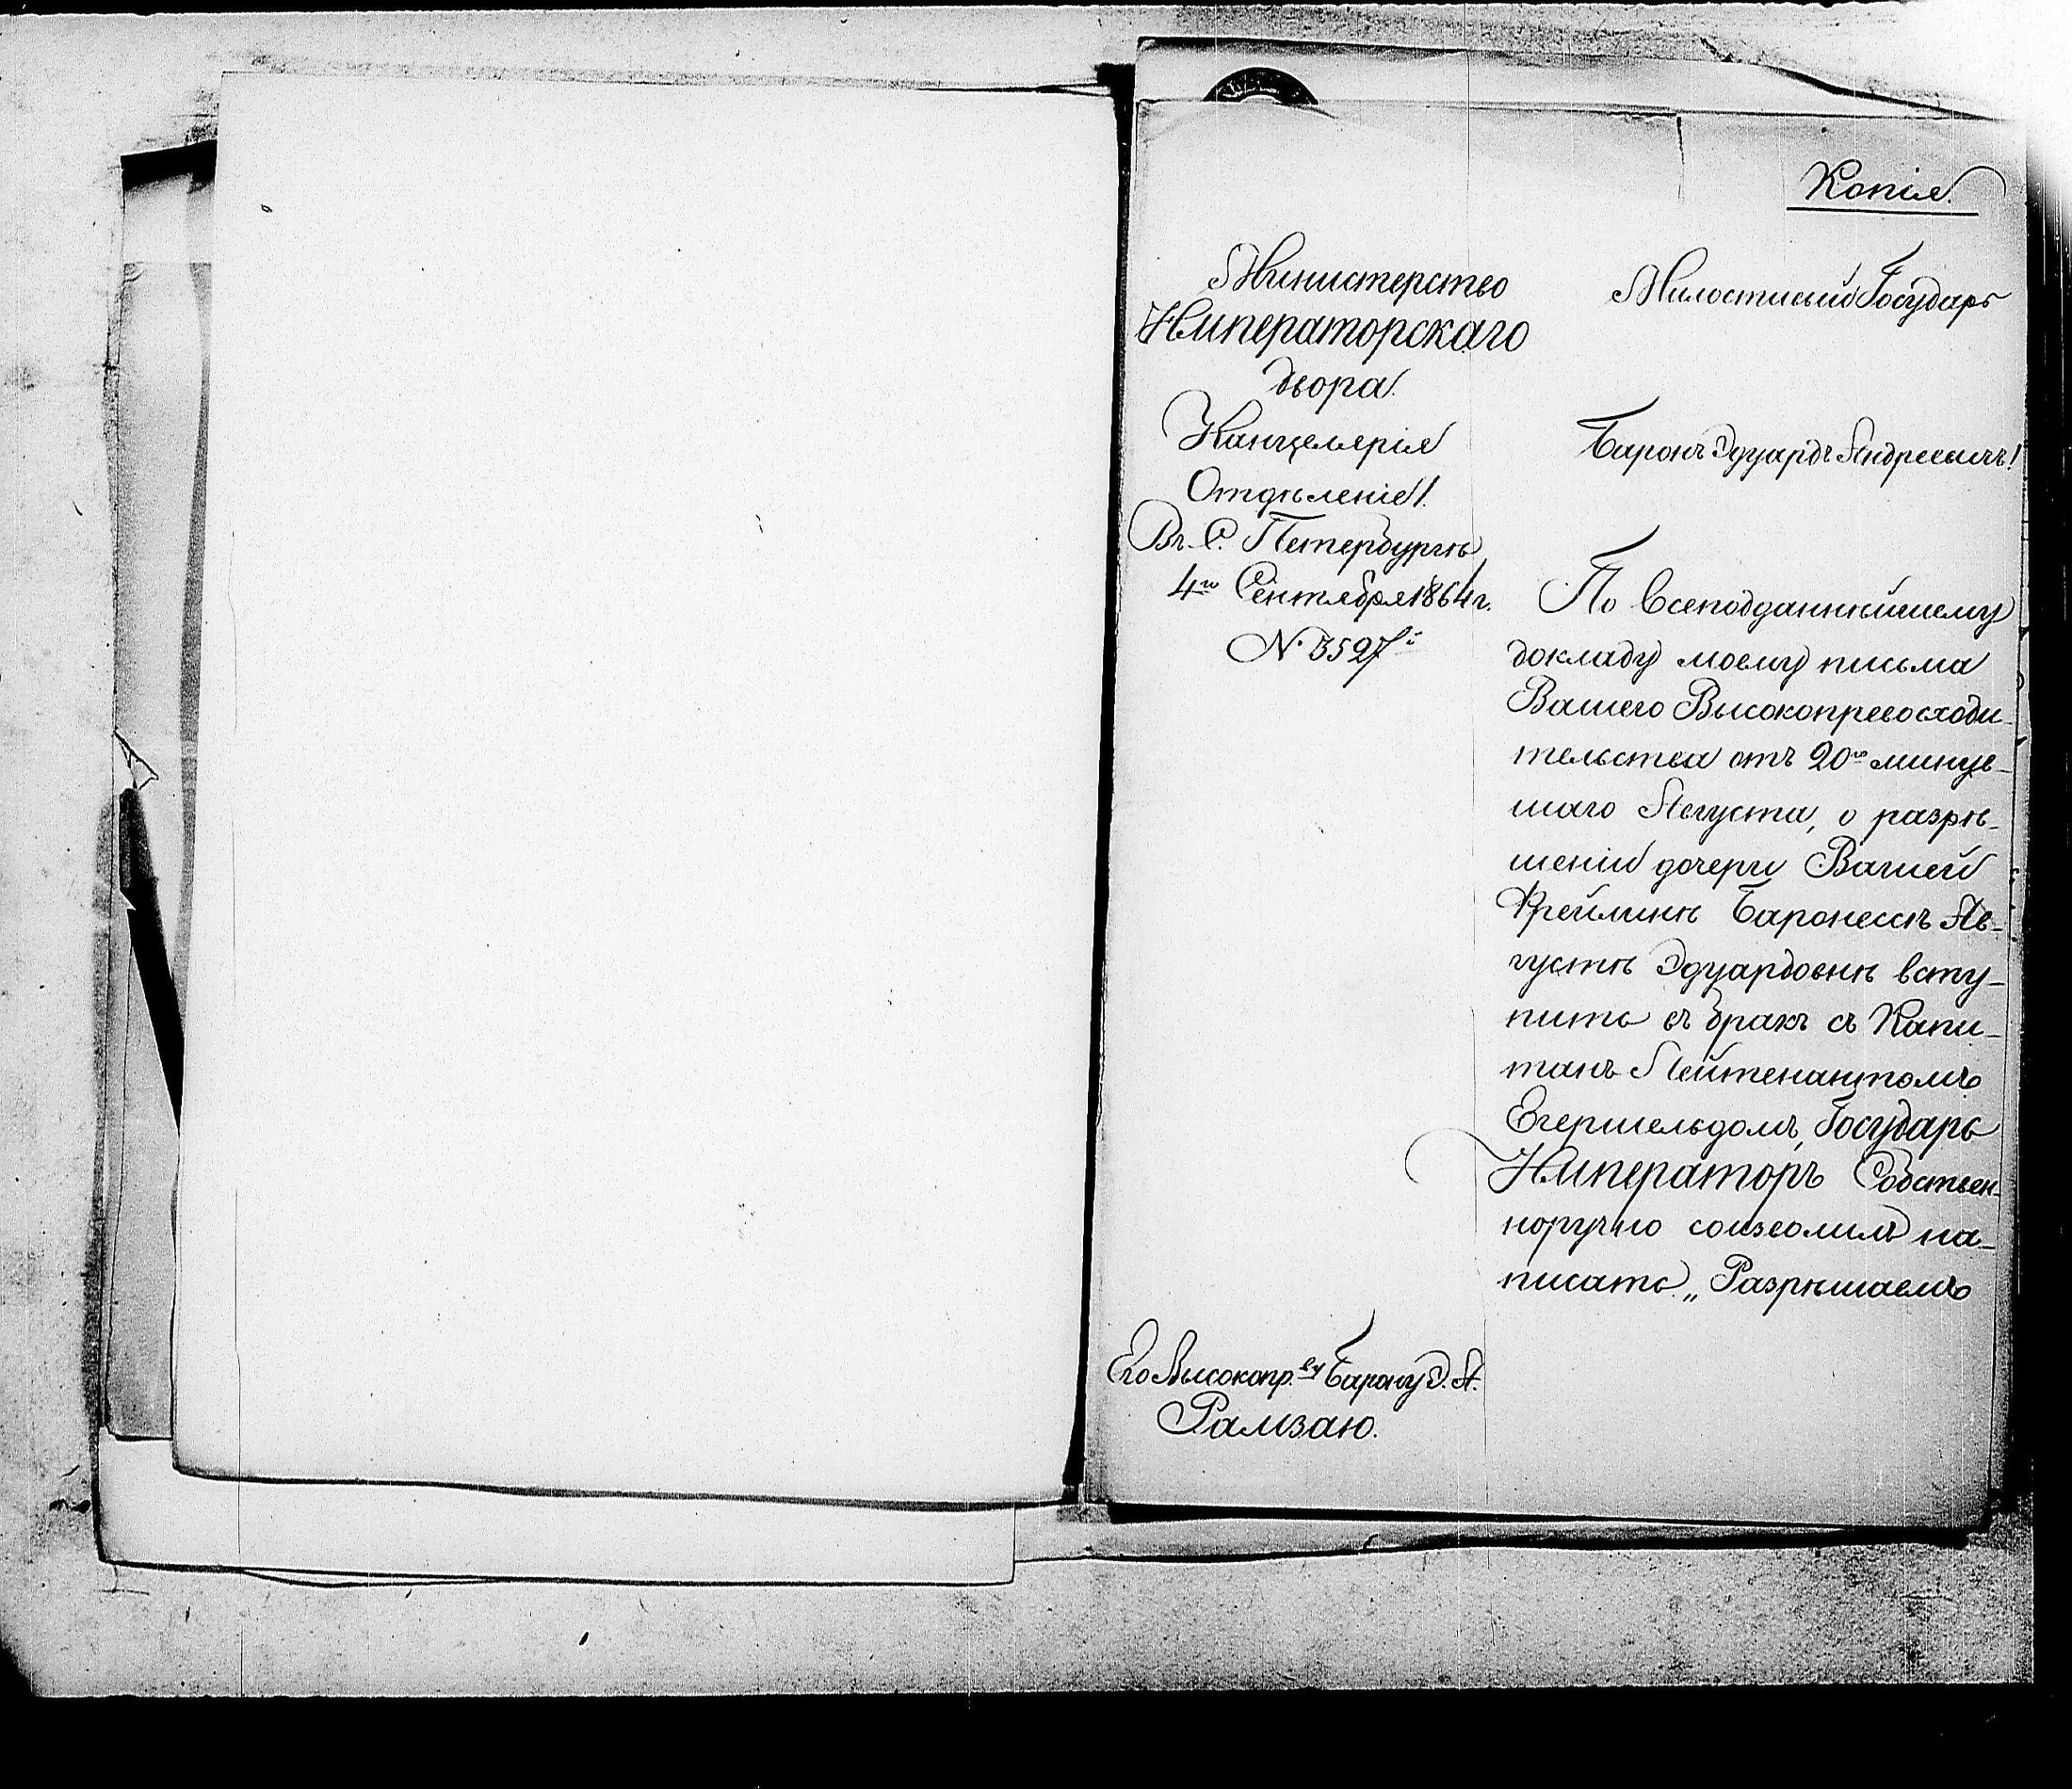 Копія.
Министерство
Императорскаго
двора.
Канцелярія
Отдѣленіе 1.
Въ С. Петербургѣ,
4го Сентября 1864 г.
№ 3527й
Милостивый Государь
Баронъ Эдуардъ Андреевичъ!
По всеподданнѣйшему
докладу моему письма
Вашего Высокопревосходи-
тельства отъ 20го минув-
шаго Августа, о разрѣ-
шеніи дочери Вашей
Фрейлинѣ Баронессѣ Ав-
густѣ Эдуардовнѣ всту-
пить въ бракъ съ Капи-
танъ Лейтенантомъ
Егершельдомъ, Государь
Императоръ Собствен-
норучно соизволилъ на-
писать „Разрѣшаемъ
Его Высокопр.ву Барону Э. А.
Рамзаю.